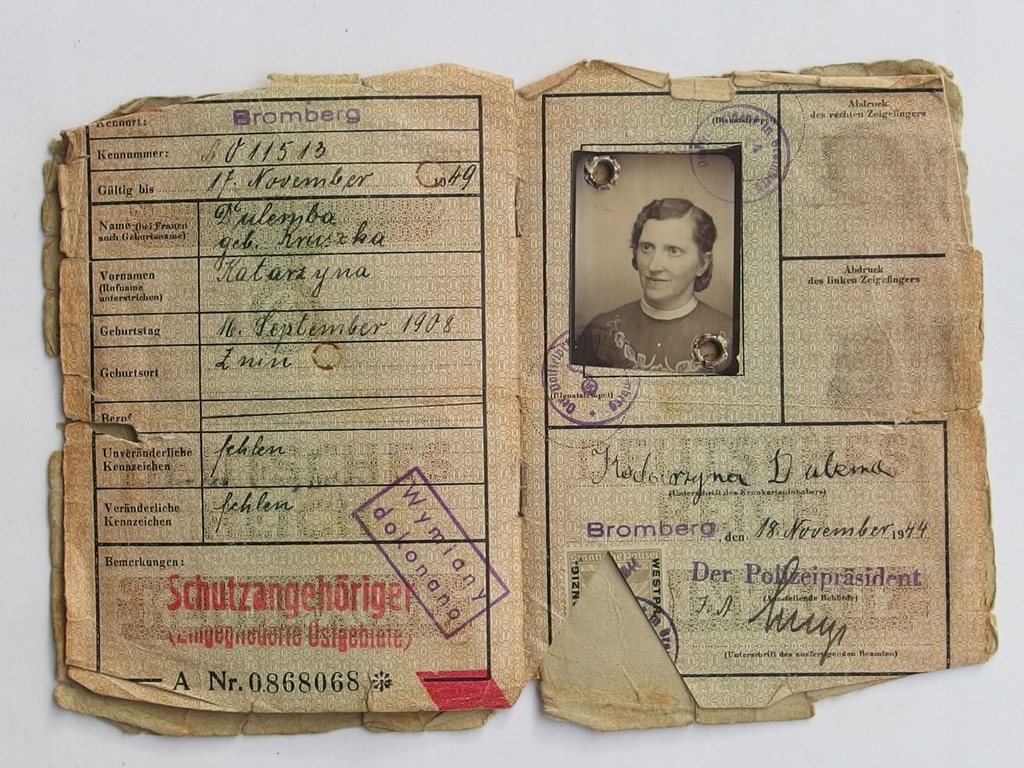 Kennort: Bromberg
Kennummer: A 0 11513
Gültig bis 17. November 1949
Name (bei Frauen
auch Geburtsname)
Dulemba
geb. Kruszka
Vornamen
(Rufname
unterstrichen)
Katarzyna
Geburtstag 16. September 1908
Geburtsort Znin
Beruf
Unveränderliche
Kennzeichen
fehlen
Veränderliche
Kennzeichen
fehlen
Wymiany
dokonano
Bemerkungen:
Schutzangehöriger
(Eingegliederte Ostgebiete)
A Nr. 0868068 ✻
(Dienststempel)
Abdruck
des rechten Zeigefingers
Abdruck
des linken Zeigefingers
(Dienststempel)
Katarzyna Dulema
(Unterschrift des Kennkarteninhabers)
Bromberg, den 18. November 1944
Der Polizeipräsident
(Ausstellende Behörde)
I. A.
(Unterschrift des ausfertigenden Beamten)
WESTPR